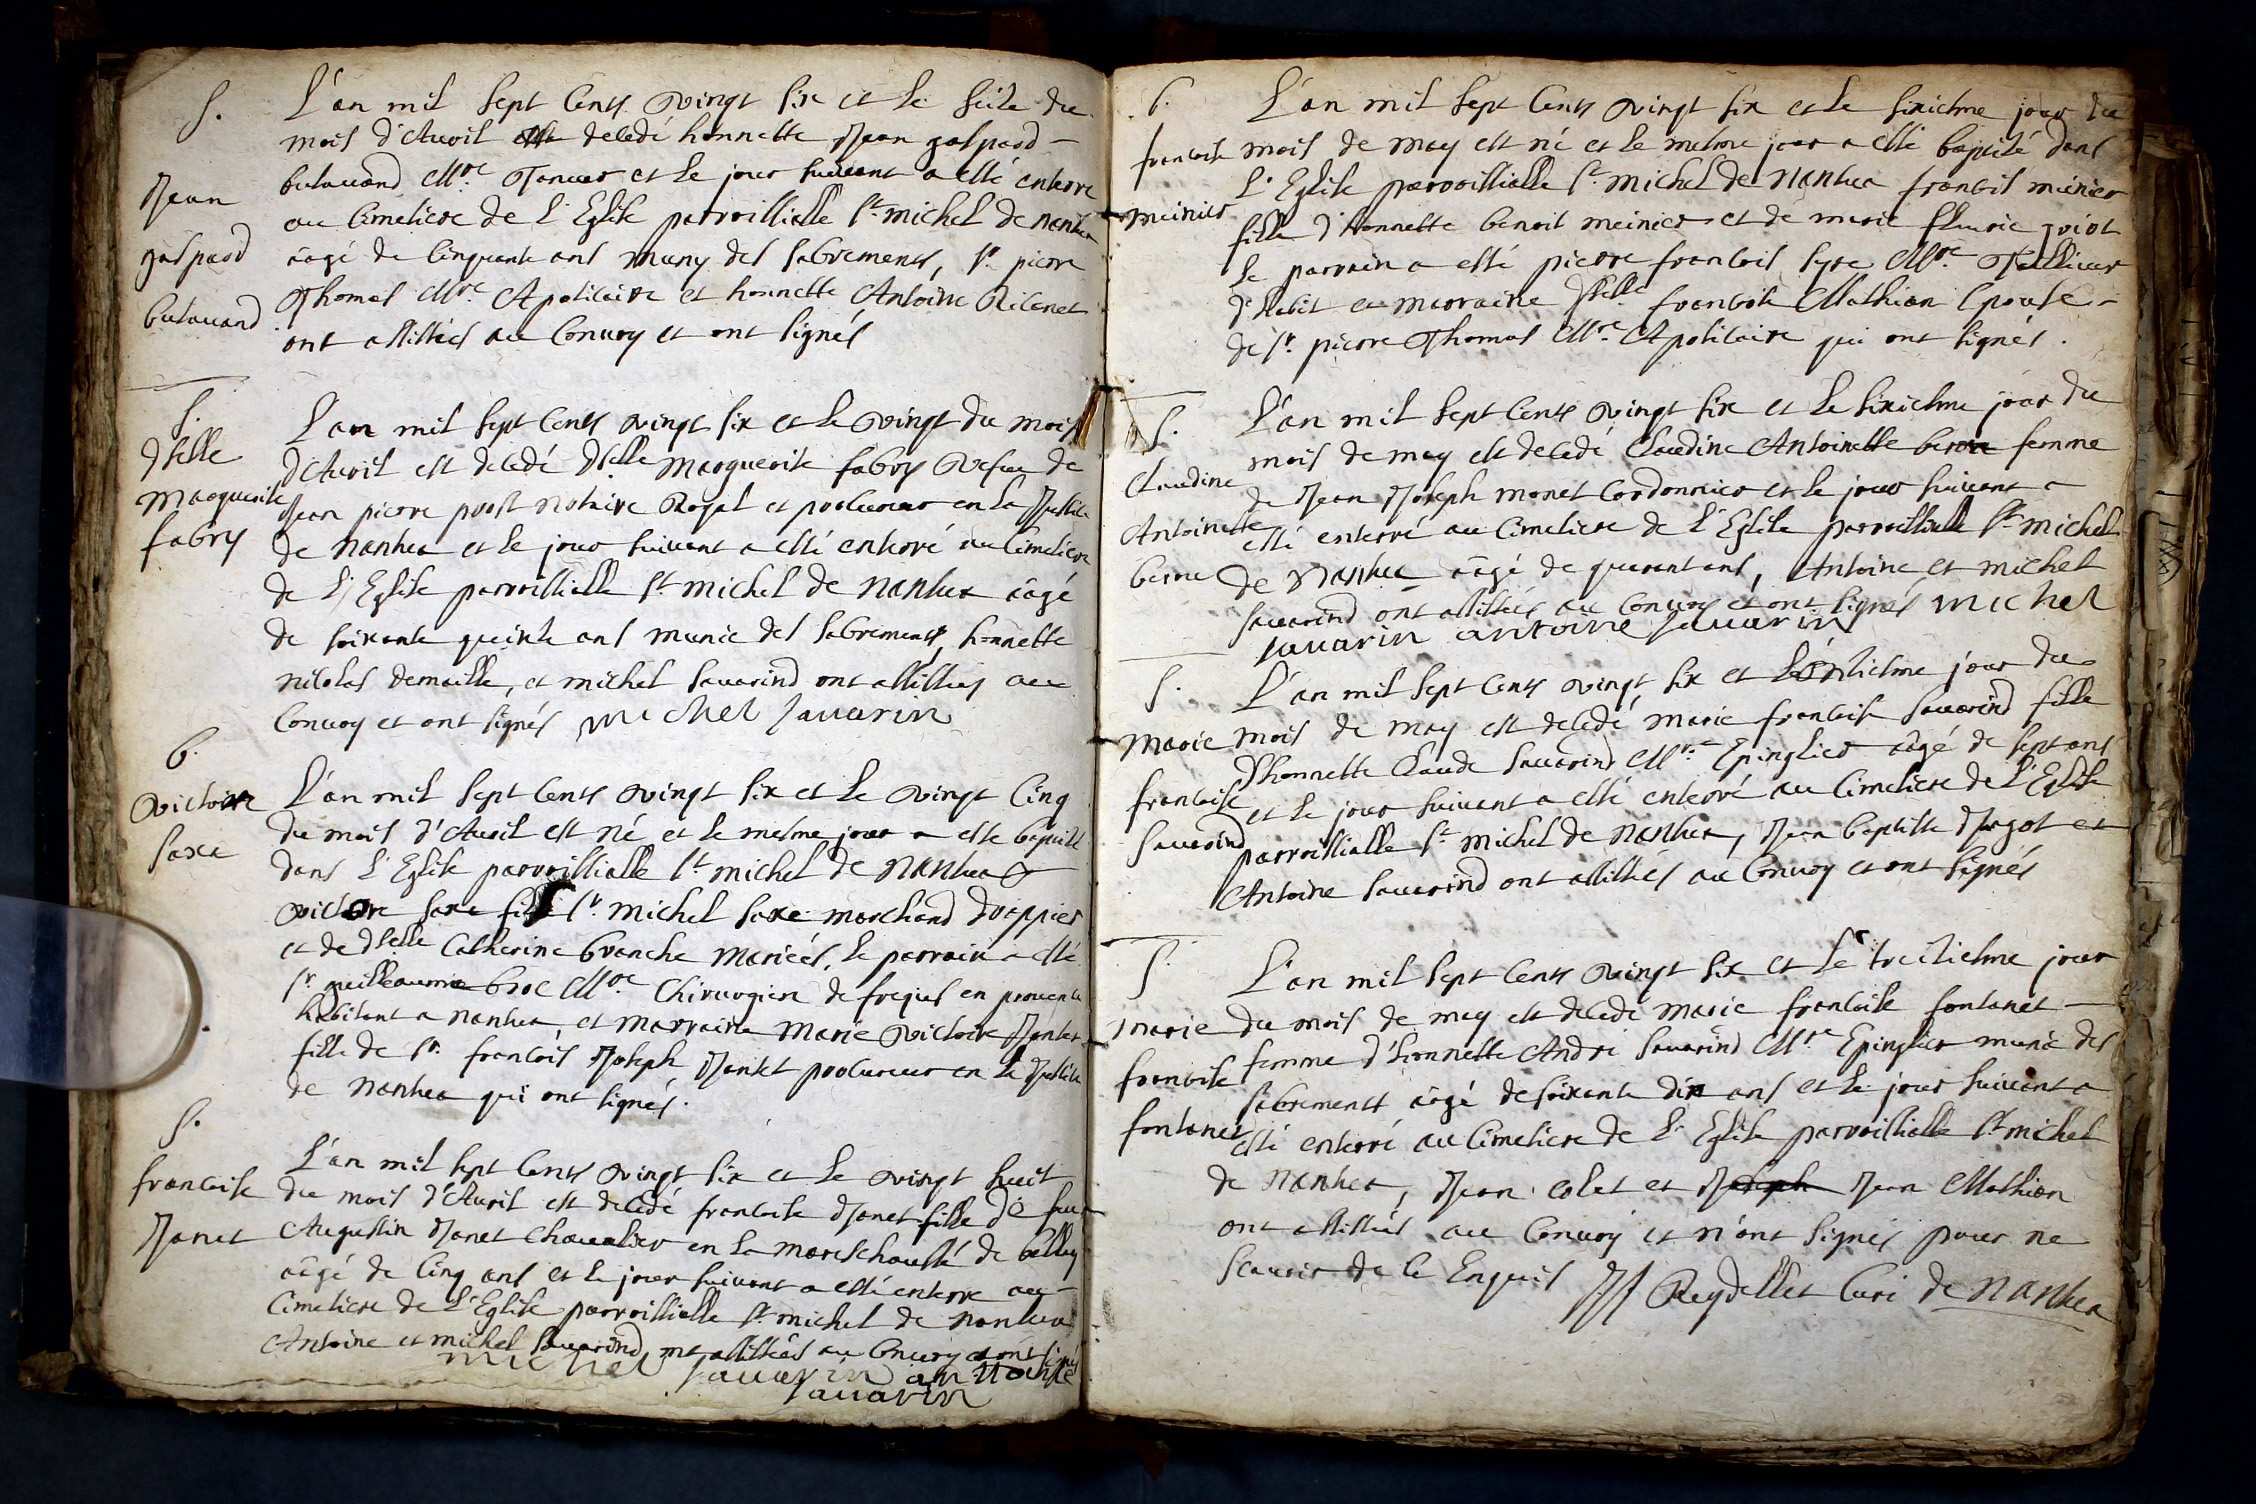 S.
Jean
gaspard
butavand
L'an mil Sept Cents vingt six et le seize du
mois d'Avril est decedé honnette Jean gaspard
butavand Mre. Tanneur et le jour suivant a esté enterre
au Cimetiere de L'Eglise parroissialle St. michel de nantua
aagé de Cinquante ans muny des sacrements, Sr. pierre
Thomas Mre. Apoticaire et honnette Antoine
ont assistés au Convoy et ont signés
S.
Dselle
Marguerite
fabry
L'an mil sept Cents vingt six et le vingt du mois
d'Avril est decedé Dselle Marguerite fabry vefue de
Jean pierre prost notaire Royal et procureur en la Justice
de nantua et le jour suivant a esté enterré au Cimetiere
de L'Eglise parroissialle St. michel de nantua aagé
de soixante quinze ans munie des sacrements, honnette
nicolas demaille, et michel savarind ont assistés au
Convoy et ont signés michel savarin
b.
Victoire
saxe
L'an mil Sept Cents vingt six et le vingt Cinq
du mois d'Avril est né et le mesme jour a esté baptisé
dans L'Eglise parroissialle St. michel de Nantua
victoire saxe fille Sr. michel saxe marchand drappier
et de Dselle Catherine branche mariés, le parrain a esté
Sr. guilleaume broc Mre. Chirurgien de frejus en provence
habitant a nantua, et marraine marie victoire Jantet
fille de Sr. francois Joseph Jantet procureur en la Justice
de nantua qui ont signés.
S.
francoise
Janet
L'an mil sept Cents vingt six et le vingt huit
du mois d'Avril est decedé francoise Janet fille de feu
Augustin Janet Chavalier en la mareschaussé de belley
aagé de Cinq ans et le jour suivant a esté enterre au
Cimetiere de L'Eglise parroissialle St. michel de nantua
Antoine et michel savarind ont assistés au Convoy et ont signés
michel savarin antoine
savarin
b.
francoise
meinier
L'an mil sept Cents vingt six et le sixiesme jour du
mois de may est né et le mesme jour a esté baptisé dans
L'Eglise parroissialle St. michel de nantua francois meinier
fille d'honnette benoit meinier et de marie fleurie guiot
le parrain a esté pierre francois syre Mre. Tallieur
d'habit et marraine Dselle francoise Mathian Epouse
de Sr. pierre Thomas Mre. Apoticaire qui ont signés.
S.
Claudine
Antoinette
berne
L'an mil sept Cents vingt six et le sixiesme jour du
mois de may est decedé Claudine Antoinette berne femme
de Jean Joseph monet Cordonnier et le jour suivant a
esté enterré au Cimetiere de L'Eglise parroissialle St. michel
de Nantua aagé de quarant ans, Antoine et michel
savarind ont assistés au Convoy et ont signés michel
savarin antoine savarin
S.
Marie
francoise
Savarind
L'an mil sept Cents vingt six et L'onziesme jour du
mois de may est decedé marie francoise savarind fille
d'honnette Claude savarind Mre. Epinglier aagé de sept ans
et le jour suivant a esté enterré au Cimetiere de L'Eglise
parroissialle St. michel de nantua, Jean baptiste Jagot et
Antoine savarind ont assistés au Convoy et ont signés
S.
marie
francoise
fontanet
L'an mil sept Cents vingt six et le treiziesme jour
du mois de may est decedé marie francoise fontanet
femme d'honnette André savarind Mre. Epinglier munie des
sacrements aagé de soixante dix ans et le jour suivant a
esté enterré au Cimetiere de L'Eglise parroissialle St. michel
de nantua, Jean colet et Joseph Jean Mathian
ont assistés au Convoy et n'ont signés pour ne
scavoir de ce Enquis Reydellet Curé de nantua